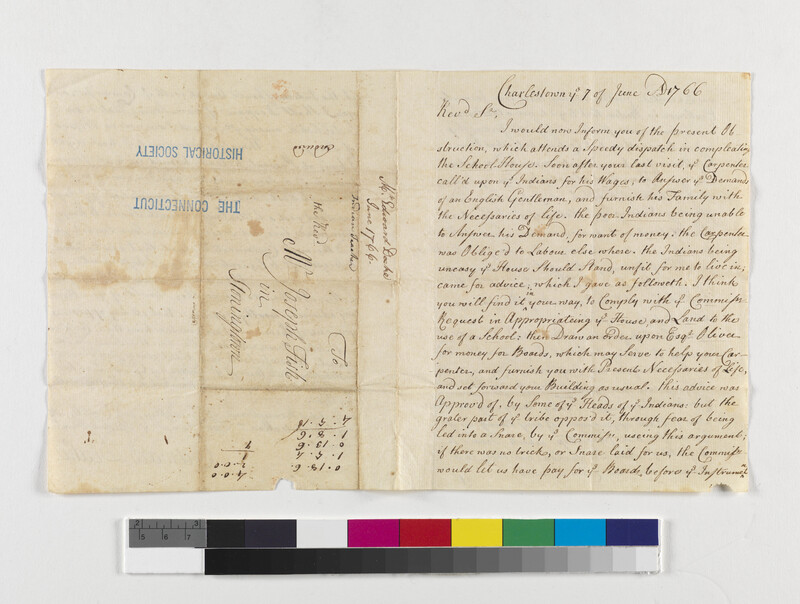 Charlestown yᵉ 7 of June AD 1766
Revᵈ Sʳ,
I would now Inform you of the present Ob
struction, which attends a Speedy dispatch in compleating
the School House. Soon after your last visit, yᵉ Carpenter
call'd upon yᵉ Indians for his Wages; to Answer yᵉ Demands
of an English Gentleman, and furnish his Family with
the Necessaries of life. the poor Indians being unable
to Answer his Demand, for want of money: the Carpenter
was Oblige'd to Labour else where. the Indians being
uneasy yᵉ House Should Stand, unfit for me to live in;
came for advice; which I gave as followeth. I think
you will find it in your way, to Comply with yᵉ Commissʳˢ
Request in Appropriateing yᵉ House and Land to the
use of a School: then Draw an order upon Esqʳ Oliver
for money for Boards, which may Serve to help your Car-
penter, and furnish you with Present Necessaries of Life,
and set forward your Building as usual. this advice was
Approv'd of, by Some of yᵉ Heads of yᵉ Indians: but the
grater part of yᵉ tribe oppos'd it, through fear of being
led into a Snare, by yᵉ Commissʳˢ, useing this argument;
if there was no trick, or Snare laid for us, the Commissʳˢ
would let us have pay for yᵉ Boards, before yᵉ Instrumᵗ
Mʳ Edward Deake
June 1766.
Indian
To
the Revᵈ
Mʳ Joseph Fish
in
Stonington
THE CONNECTICUT
HISTORICAL SOCIETY
0.18.6
1.5.4
0.13.6
1.8.6
4.5.10
4.0.0